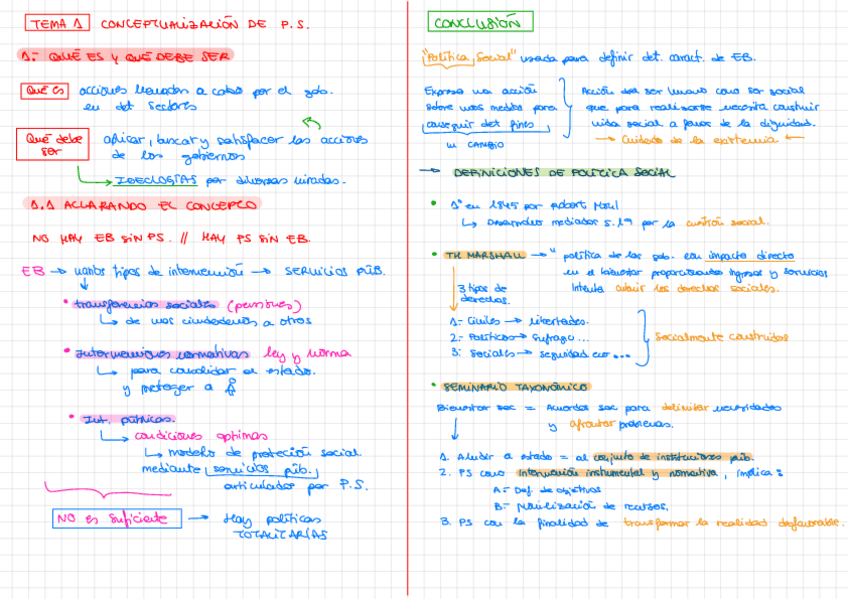 TEMA 1 CONCEPTUALIZACIÓN DE P.S.
1.- QUÉ ES Y QUÉ DEBE SER
Qué es acciones llevadas a cabo por el gob.
en det sectores
Qué debe ser
y satisfacer las acciones
de los gobiernos
IDEOLOGÍAS por diversas miradas.
1.1 ACLARANDO EL CONCEPTO
NO HAY EB SIN PS. // HAY PS SIN EB.
EB → varios tipos de intervención → SERVICIOS PÚB.
• transferencias sociales (pensiones)
↳ de unos ciudadanos a otros
• Intervenciones normativas ley y norma
↳ para consolidar el estado.
y proteger a
• Int. públicas.
↳ condiciones optimas
↳ modelo de proteción social
mediante servicios púb.
articulados por P.S.
NO es suficiente → Hay políticas
TOTALITARIAS
CONCLUSIÓN
"Política Social" usada para definir det. caract. de EB.
Expresa una acción
sobre unos medios para
conseguir det fines
un CAMBIO
Acción del ser humano como ser social
que para realizarse necesita construir
vida social a favor de la dignidad.
→ Cuidado de la existencia ←
→ DEFINICIONES DE POLÍTICA SOCIAL
• 1º en 1845 por Robert Mohl
↳ Desarrollo mediador s.19 por la cuestión social.
• TH MARSHALL → " política de los gob. con impacto directo
en el bienestar proporcionando ingresos y servicios
Intenta cubrir los derechos sociales.
3 tipos de
derechos.
1.- Civiles → libertades.
2.- Políticos → sufragio...
3.- Sociales → seguridad eco...
Socialmente construidos
• SEMINARIO TAXONÓMICO
Bienestar soc = Acuerdos soc para delimitar necesidades
y afrontar problemas.
1. Aludir a estado = al conjunto de instituciones púb.
2. PS como intervención instrumental y normativa, implica:
A= Def. de objetivos
B= Movilización de recursos.
3. PS con la finalidad de transformar la realidad desfavorable.